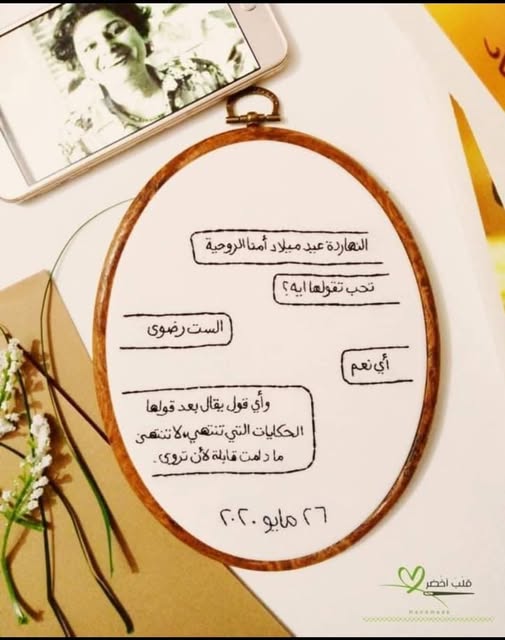 النهاردة عيد ميلاد أمنا الروحية
تحب تقولها ايه؟
الست رضوى
أي نعم
وأي قول يقال بعد قولها
الحكايات التي تنتهي، لا تنتهي
ما دامت قابلة لأن تروى.
٢٦ مايو ٢٠٢٠
قلب اخضر
Handmade